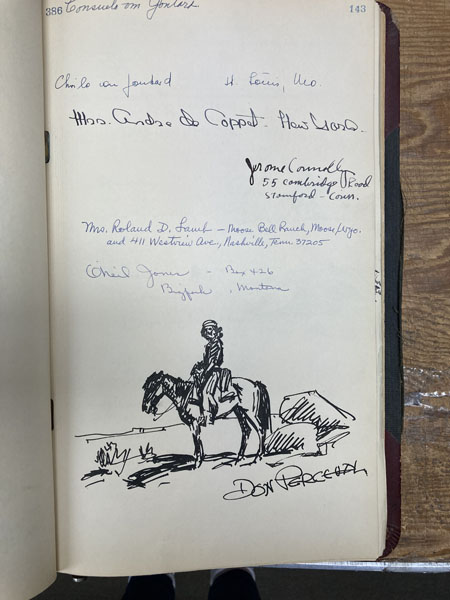 386 Consuelo von Gontard 143
von Gontard St. Louis, Mo.
Mrs. Andre de Coppet - New York.
Jerome Connolly
55 Cambridge Road
Stamford - Conn.
Mrs. Roland D. Lamb - Moose Bell Ranch, Moose, Wyo.
and 411 Westview Ave., Nashville, Tenn. 37205
O'Neil Jones - Box 426
Bigfork, Montana
Don Perceval